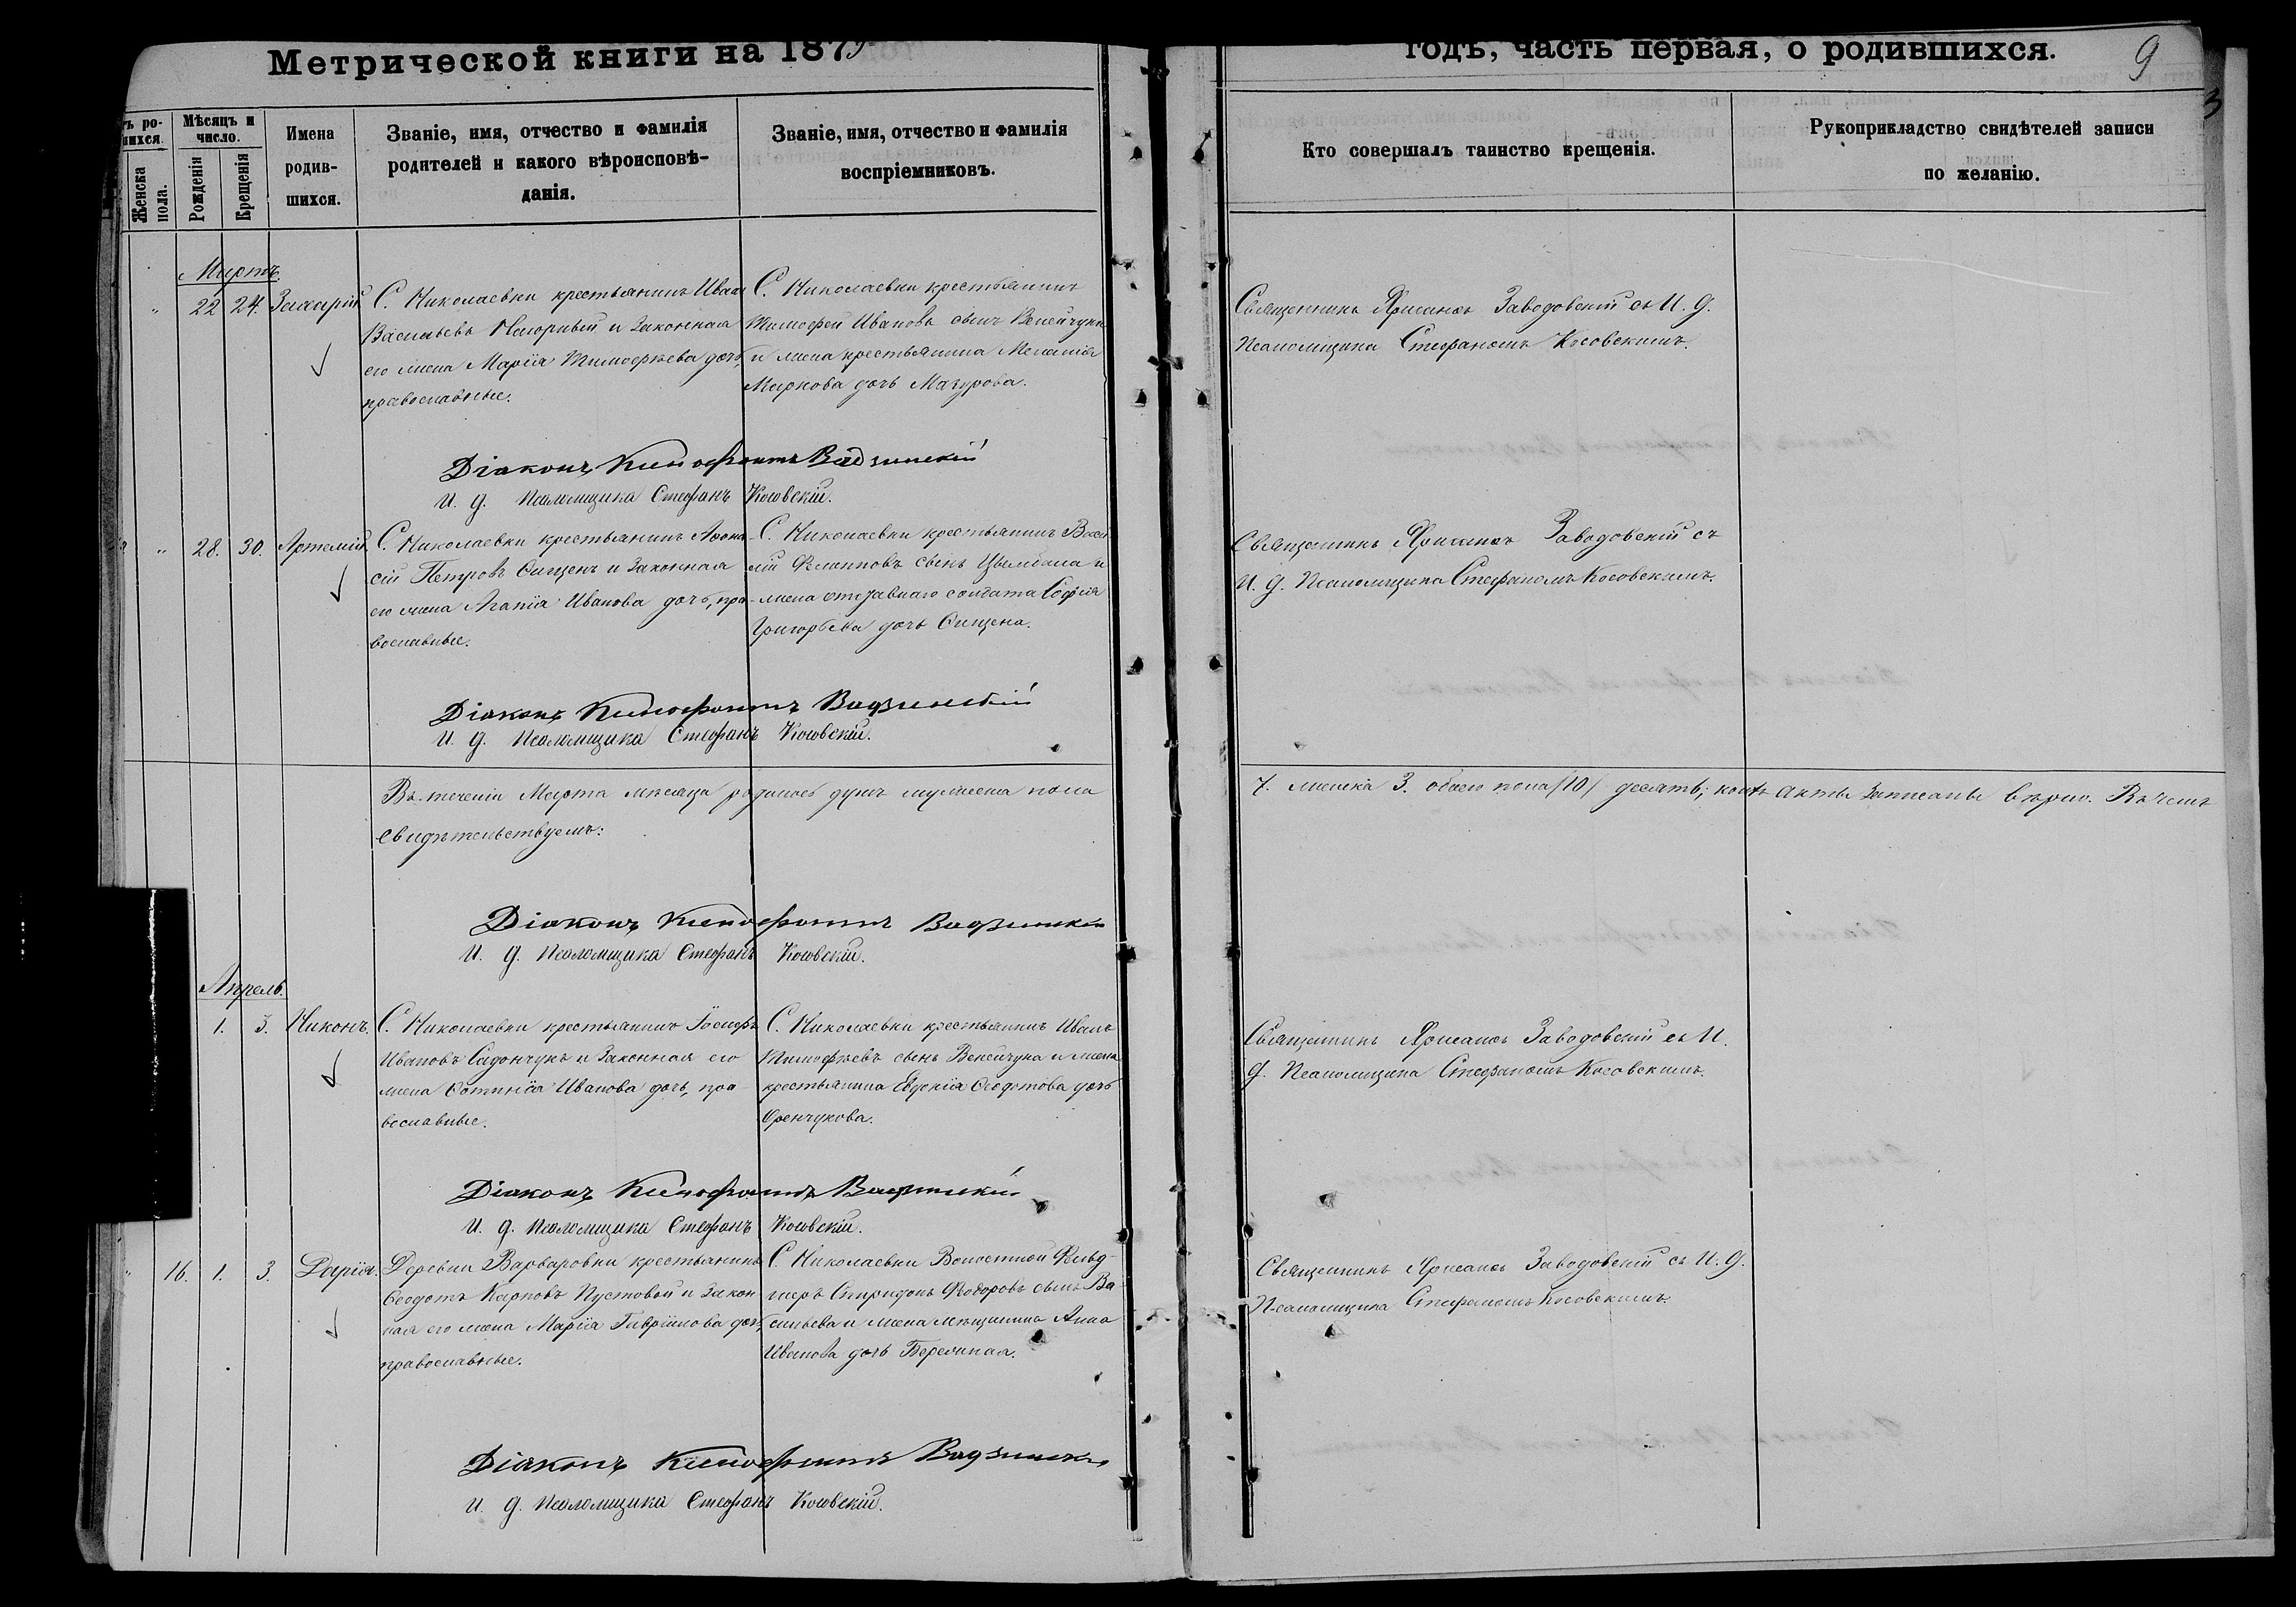 Метрической книги на 187
годъ, часть первая, о родившихся.
9
3
Мѣсяцъ и число.
Женска пола.
Рожденія
Крещенія
Имена родив-
шихся.
Званіе, имя, отчество и фамилія
родителей и какого вѣроисповѣ-
данія.
Званіе, имя, отчество и фамилія
воспріемниковъ.
Кто совершалъ таинство крещенія.
Рукоприкладство свидѣтелей записи
по желанію.
Мартъ.
22 24. Захарій
С. Николаевки крестьянинъ Иванъ
Васильевъ и законная
его жена Марія Тимоѳеева дочь,
православные.
С. Николаевки крестьянинъ
Тимофей Ивановъ сынъ Венейчукъ
и жена крестьянина Меланія
Маркова дочь Мазурова.
Священникъ Заводовскій съ И. д.
Псаломщика Стефаномъ Косовскимъ.
Діаконъ Ксенофонтъ Вадзинскій
И. д. Псаломщика Стефанъ Косовскій.
28. 30. Артемій.
С. Николаевки крестьянинъ Аѳана-
сій Петровъ Сищенъ и законная
его жена Агапія Иванова дочь, пра-
вославные.
С. Николаевки крестьянинъ Васи
лій Филипповъ сынъ Цымбала и
жена отставнаго солдата Софія
Григорьева дочь Сищена.
Священникъ Заводовскій съ
И. д. Псаломщика Стефаномъ Косовскимъ.
Діаконъ Ксенофонтъ Вадзинскій
И. д. Псаломщика Стефанъ Косовскій.
Въ теченіи Марта мѣсяца родилось душъ мужеска пола
7. женска 3. обоего пола (10) десять; акты записаны вѣрно. Въ чемъ
свидѣтельствуемъ:
Діаконъ Ксенофонтъ Вадзинскій
И. д. Псаломщика Стефанъ Косовскій.
Апрель.
1. 3. Никонъ.
С. Николаевки крестьянинъ Іосифъ
Ивановъ Садончукъ и законная его
жена Фотинія Иванова дочь, пра-
вославные.
С. Николаевки крестьянинъ Иванъ
Тимофѣевъ сынъ Венейчука и жена
крестьянина Евдокія Ѳеодотова дочь
Френчукова.
Священникъ Заводовскій съ И.
д. Псаломщика Стефаномъ Косовскимъ.
Діаконъ Ксенофонтъ Вадзинскій
И. д. Псаломщика Стефанъ Косовскій.
16. 1. 3. Дарія.
Деревни Варваровки крестьянинъ
Ѳеодотъ Карповъ Пустовой и закон-
ная его жена Марія Гавріилова дочь,
православные.
С. Николаевки Волостной Фельд-
шеръ Спиридонъ Ѳедоровъ сынъ Ва-
сильева и жена мѣщанина Анна
Иванова дочь
Священникъ Заводовскій съ И. д.
Псаломщика Стефаномъ Косовскимъ.
Діаконъ Ксенофонтъ Вадзинскій
И. д. Псаломщика Стефанъ Косовскій.